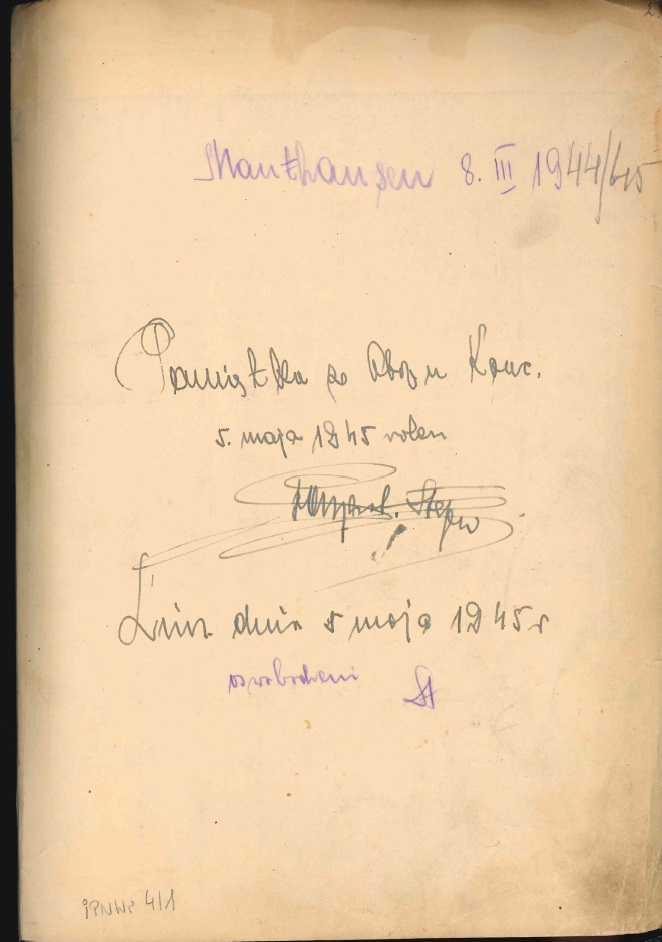 2
Mauthausen 8. III 1944/45
Pamiątka ze Obozu Konc.
5. maja 1945 wolen
Linz dnia 5 maja 1945 r
oswobodzeni St
IPNWr 4/1